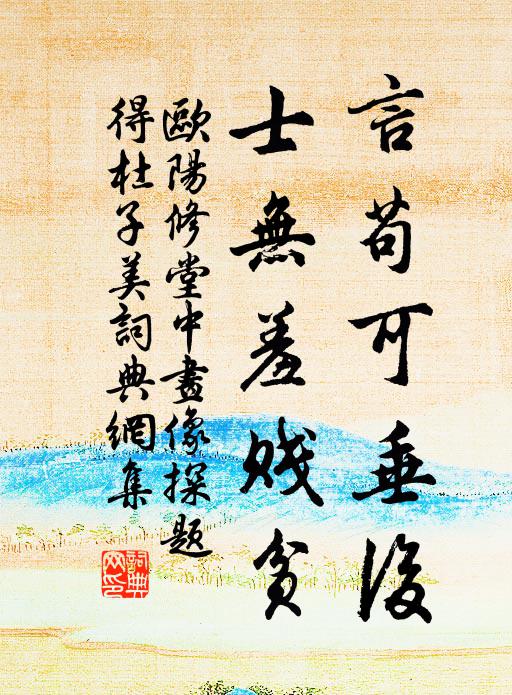 言苟可垂後
士無羞賤貧
歐陽修堂中畫像探題
得杜子美詞典網集
詞典網印